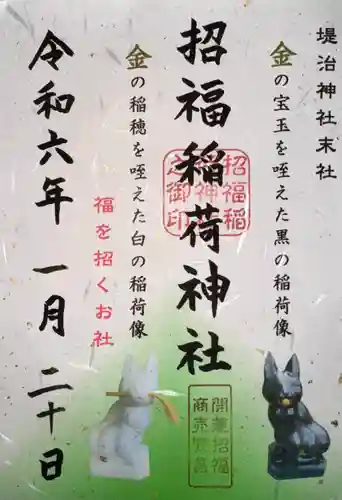 堤治神社末社
金の宝玉を咥えた黒の稲荷像
招福稲荷神社
招福稲
荷神社
之御印
開運招福
商売繁昌
金の稲穂を咥えた白の稲荷像
福を招くお社
令和六年 一月 二十日